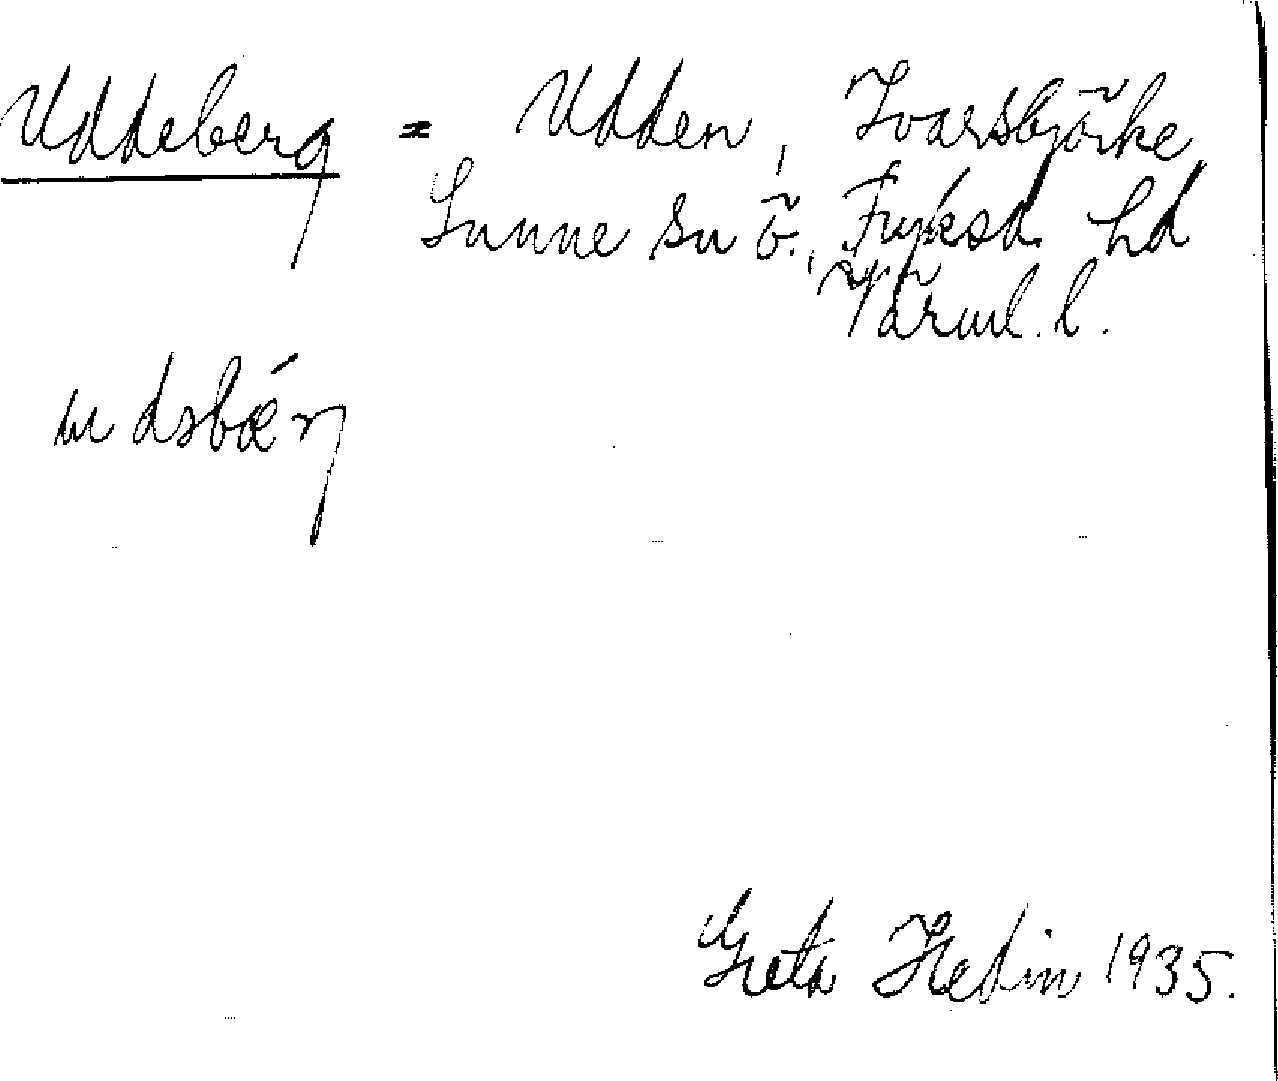 Uddeberg = Udden, Ivarsbjörke
Sunne sn ö., Fryksd. hd
Värml. l.
Greta Hedin 1935.